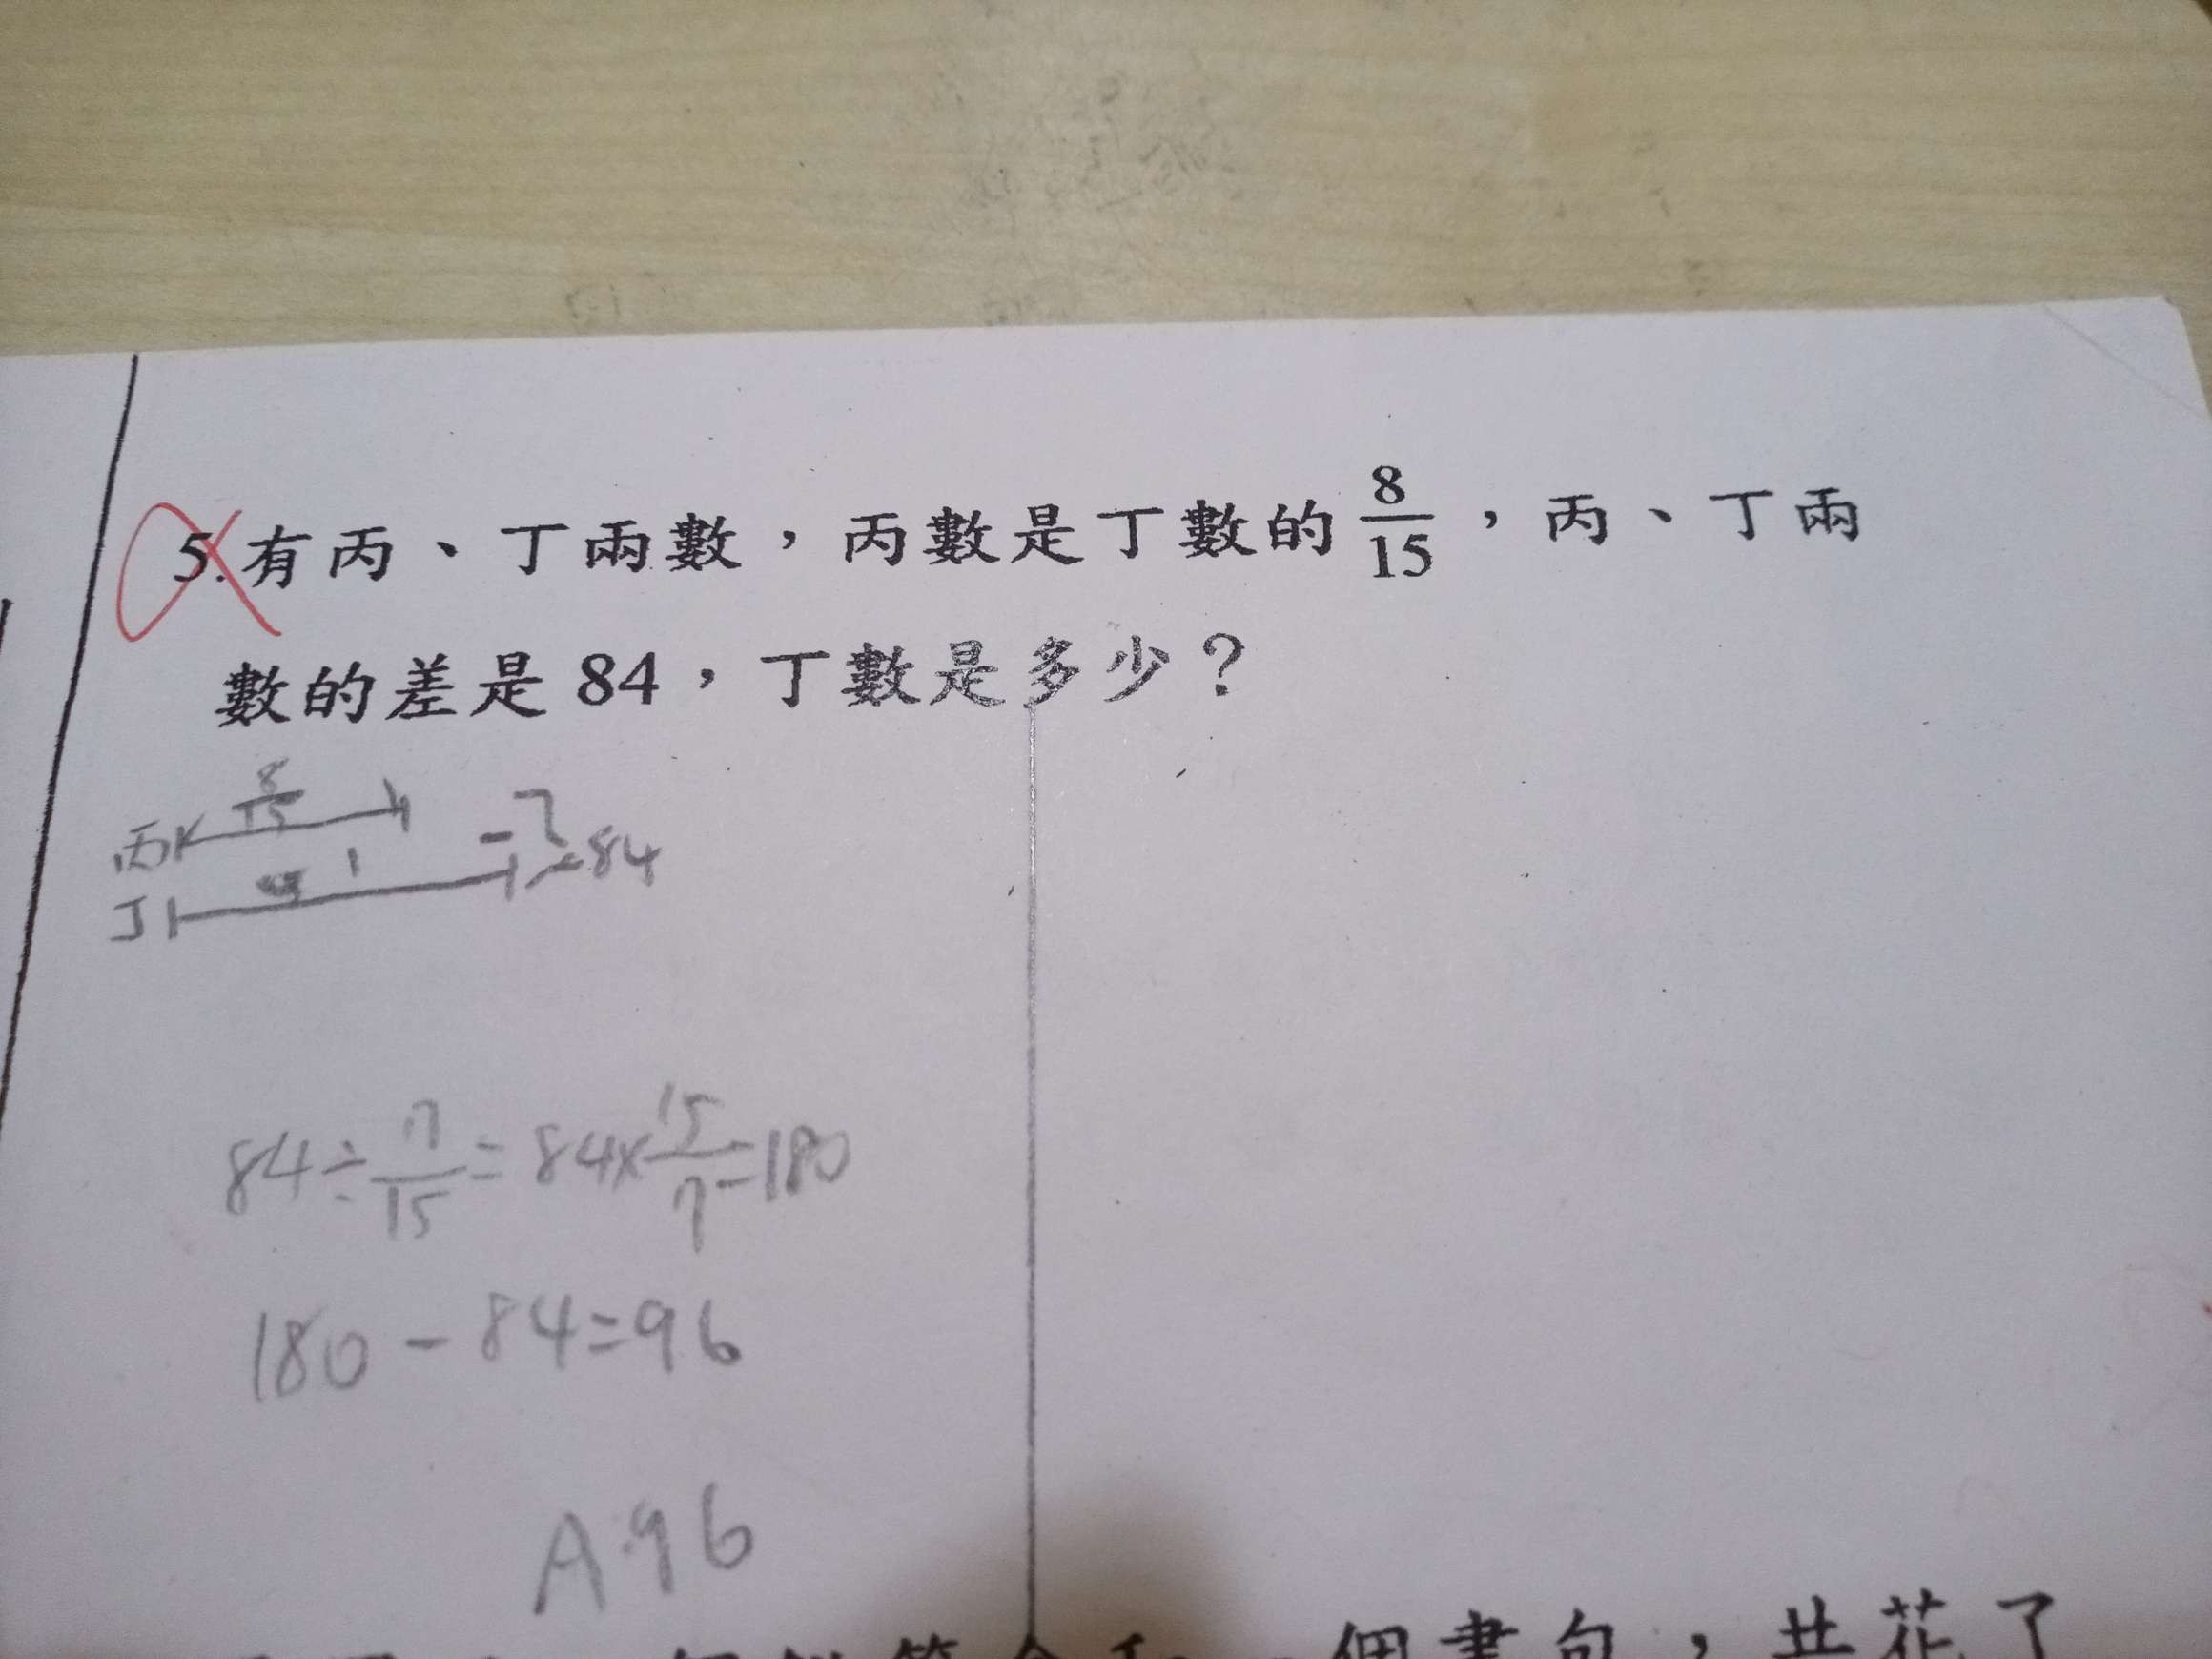 5.有丙、丁兩數，丙數是丁數的8/15，丙、丁兩
數的差是84，丁數是多少？
丙 8/15
丁 1 84
84÷7/15=84×15/7=180
180-84=96
A:96
個書包，共花了